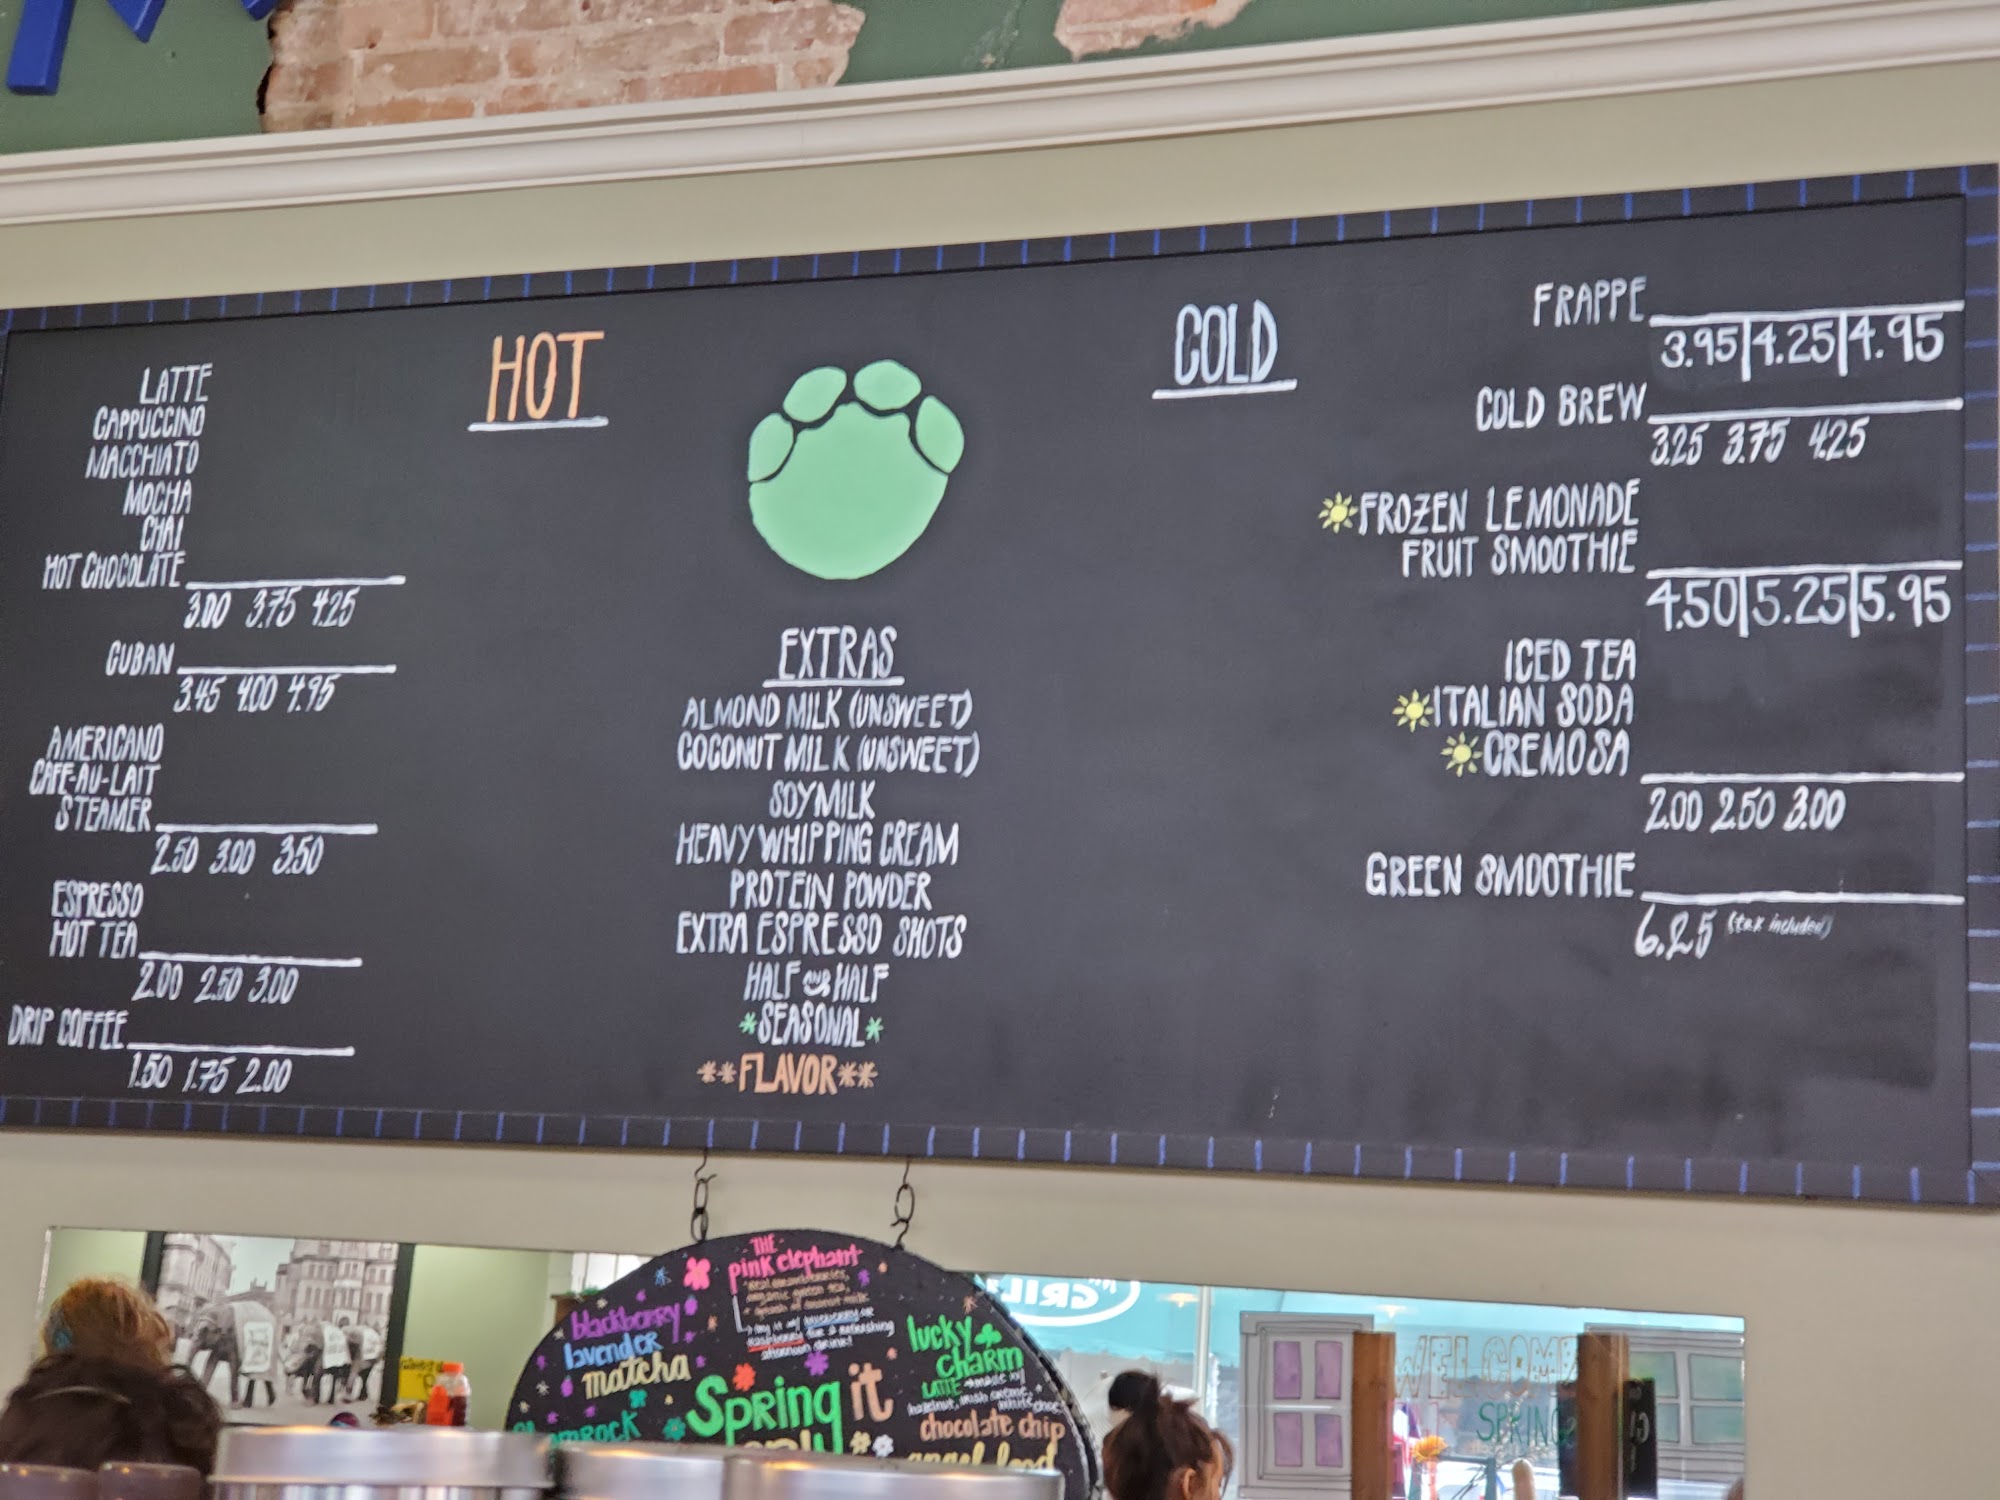 HOT
LATTE
CAPPUCCINO
MACCHIATO
MOCHA
CHAI
HOT CHOCOLATE
3.00 3.75 4.25
CUBAN
3.45 4.00 4.95
AMERICANO
CAFE-AU-LAIT
STEAMER
2.50 3.00 3.50
ESPRESSO
HOT TEA
2.00 2.50 3.00
DRIP COFFEE
1.50 1.75 2.00
EXTRAS
ALMOND MILK (UNSWEET)
COCONUT MILK (UNSWEET)
SOY MILK
HEAVY WHIPPING CREAM
PROTEIN POWDER
EXTRA ESPRESSO SHOTS
HALF AND HALF
*SEASONAL*
**FLAVOR**
COLD
FRAPPE
3.95|4.25|4.95
COLD BREW
3.25 3.75 4.25
FROZEN LEMONADE
FRUIT SMOOTHIE
4.50|5.25|5.95
ICED TEA
ITALIAN SODA
CREMOSA
2.00 2.50 3.00
GREEN SMOOTHIE
6.25 (tax included)
THE
pink elephant
blackberry
lavender
matcha
Spring it
lucky
charm
LATTE
chocolate chip
WELCOME
SPRING